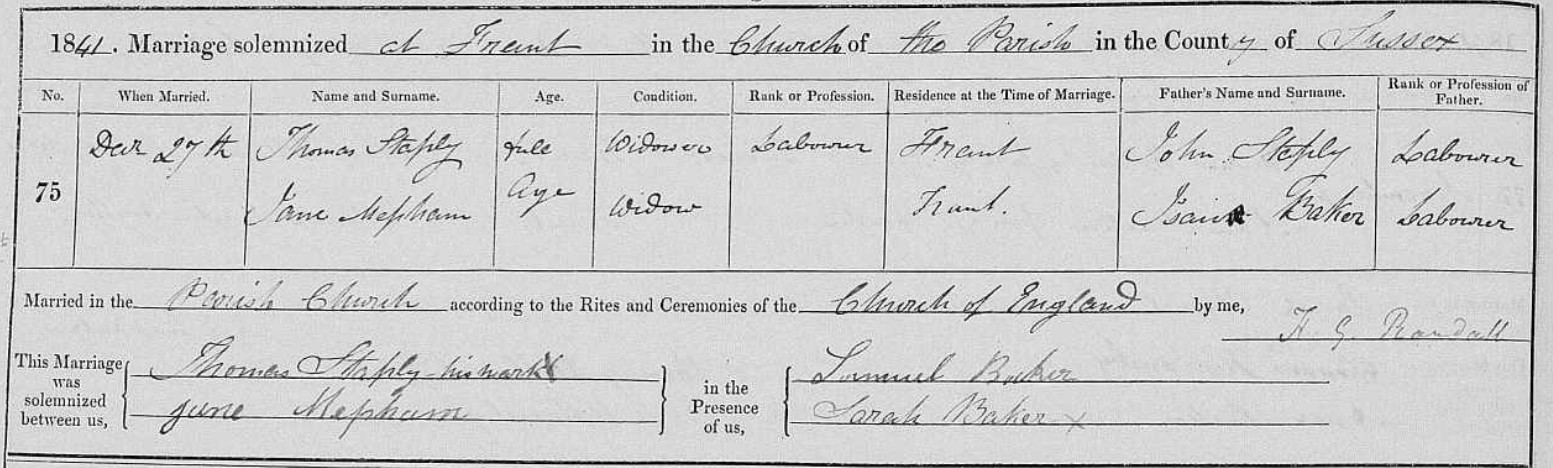 1841. Marriage solemnized at Frant in the Church of the Parish in the County of Sussex
No. When Married. Name and Surname. Age. Condition. Rank or Profession. Residence at the Time of Marriage. Father's Name and Surname. Rank or Profession of Father.
75 Decr 27th Thomas Staply full Widower Labourer Frant John Staply Labourer
Jane Mepham Age Widow Frant. Baker Labourer
Married in the Parish Church according to the Rites and Ceremonies of the Church of England by me,
H G Randall
This Marriage was solemnized between us, Thomas Staply his mark X in the Presence of us, Samuel Baker
Jane Mepham Sarah Baker X